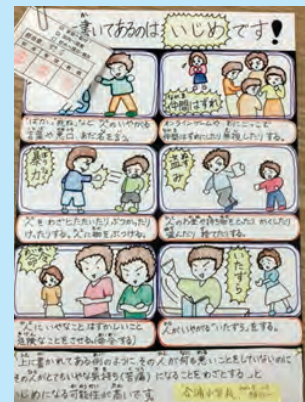 書いてあるのは いじめ です!
「ばか」「死ね」など 人のいやがる
言葉や悪口、あだ名を言う。
仲間はずれ
オンラインゲームや
仲間はずれにしたり 無視したりする。
暴力
人をわざとたたいたり、ぶつかったり
けったりする。人に物をぶつける。
盗み
人のお金や持ち物をとったり かくしたり
盗んだり 捨てたりする。
命令
人にいやなこと はずかしいこと
危険なことをさせる。(命令する)
いたずら
人がいやがる“いたずら”をする。
上に書かれてある例のように、その人が何も悪いことをしていないのに
その人がとてもいやな気持ち(苦痛)になることをわざとする。」と
いじめになる可能性が高いです
小学校